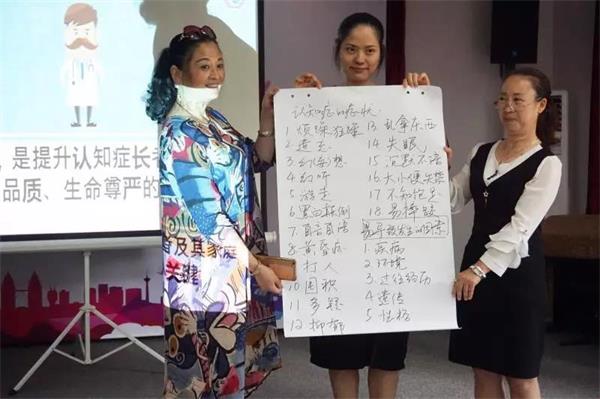 是提升认知症长者
品质、生命尊严的
普及其家庭
关键
认知症的症状:
1 烦躁狂躁
2 遗忘
3 幻(妄)想
4 幻听
5 游走
6 黑白颠倒
7 自言自语
8 黄昏症
打人
10 囤积
11 多疑
12 抑郁
13 乱拿东西
14 失眠
15 沉默不语
16 大小便失禁
17 不知饱足
18 易摔跤
易导致发生的因素
1 疾病
2 环境
3 过往经历
4 遗传
5 性格